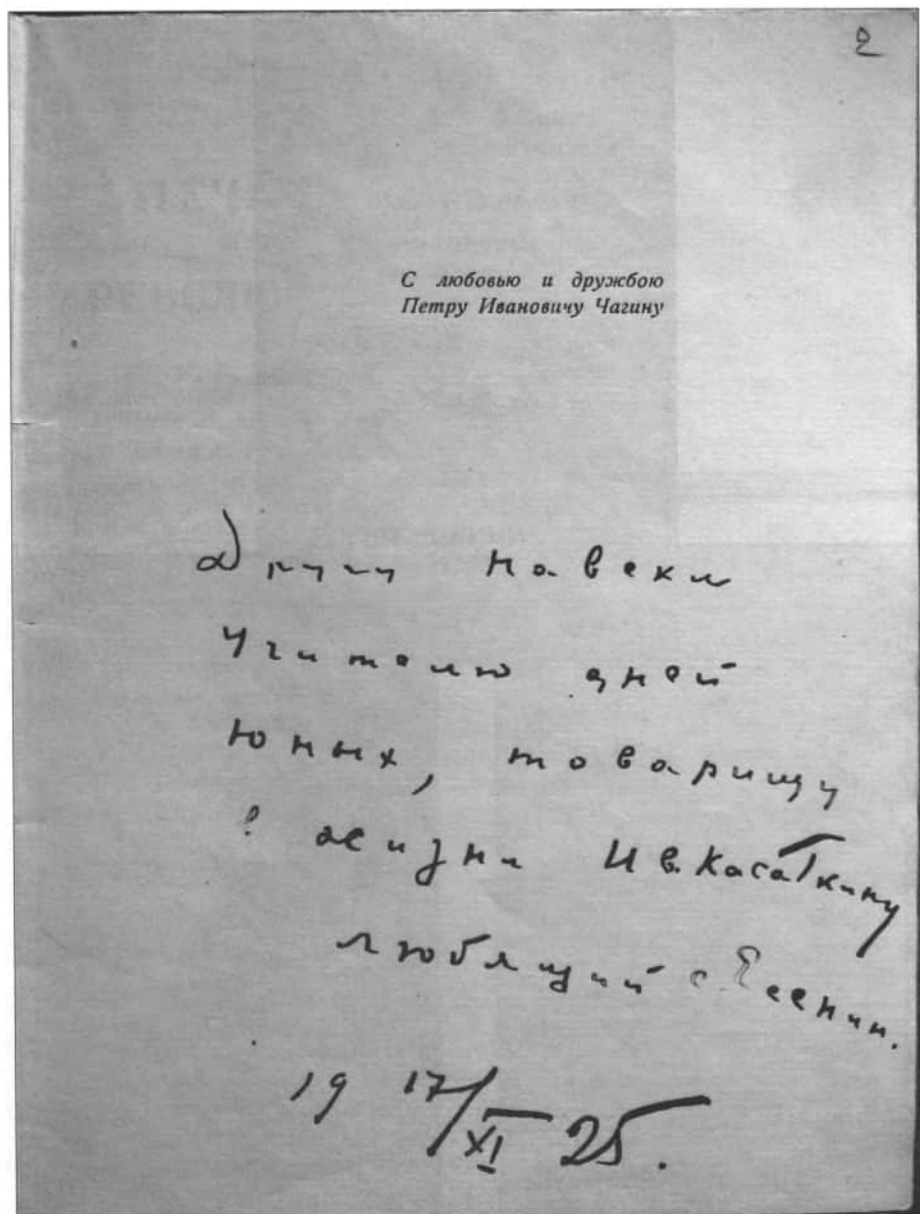 2
С любовью и дружбою
Петру Ивановичу Чагину
Другу навеки
Учителю дней
юных, товарищу
в жизни Ив. Касаткину
любящий С. Есенин.
19 17/XI 25.